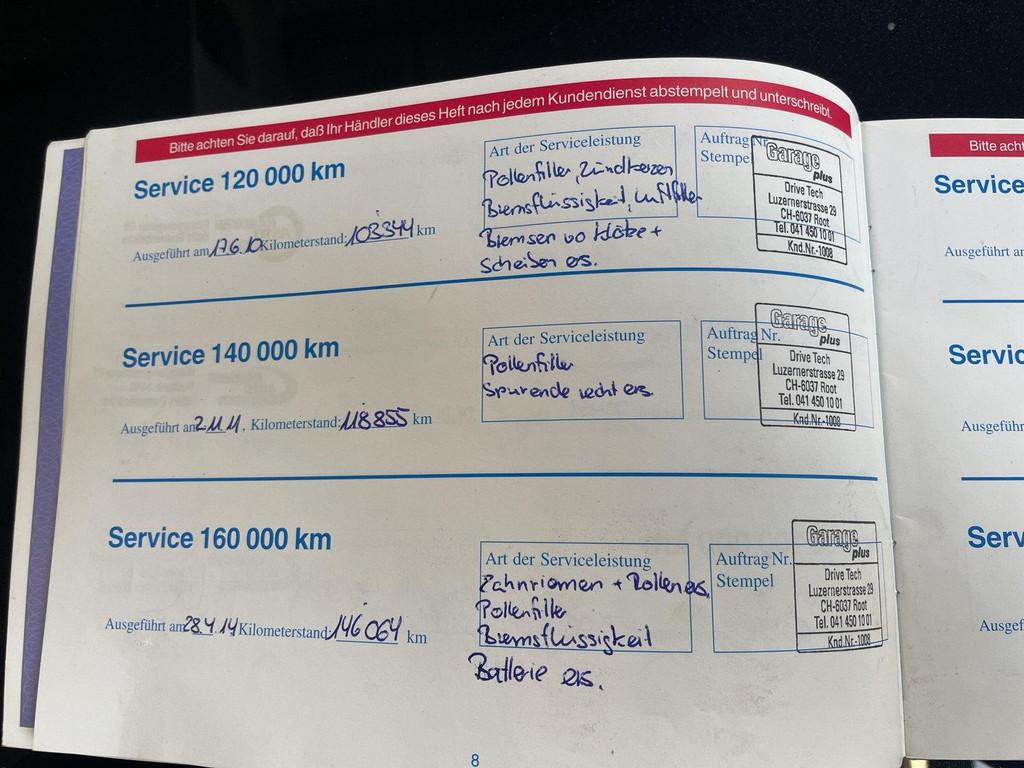 Bitte achten Sie darauf, daß Ihr Händler dieses Heft nach jedem Kundendienst abstempelt und unterschreibt.
Service 120 000 km
Art der Serviceleistung
Pollenfilter, Zündkerzen
Bremsflüssigkeit, Luftfilter
Bremsen vo Klötze +
Scheiben ers.
Auftrag Nr.
Stempel
Garage
plus
Drive Tech
Luzernerstrasse 29
CH-6037 Root
Tel. 041 450 10 01
Knd.Nr.-1008
Ausgeführt am 17.6.10 Kilometerstand: 103344 km
Service 140 000 km
Art der Serviceleistung
Pollenfilter
Spurende recht ers.
Auftrag Nr.
Stempel
Garage
plus
Drive Tech
Luzernerstrasse 29
CH-6037 Root
Tel. 041 450 10 01
Knd.Nr.-1008
Ausgeführt am 2.11.11, Kilometerstand: 118855 km
Service 160 000 km
Art der Serviceleistung
Zahnriemen + Rollen ers.
Pollenfilter
Bremsflüssigkeit
Batterie ers.
Auftrag Nr.
Stempel
Garage
plus
Drive Tech
Luzernerstrasse 29
CH-6037 Root
Tel. 041 450 10 01
Knd Nr.-1008
Ausgeführt am 28.4.14 Kilometerstand: 146064 km
8
Bitte acht
Service
Ausgeführt am
Servic
Ausgeführ
Serv
Ausgef